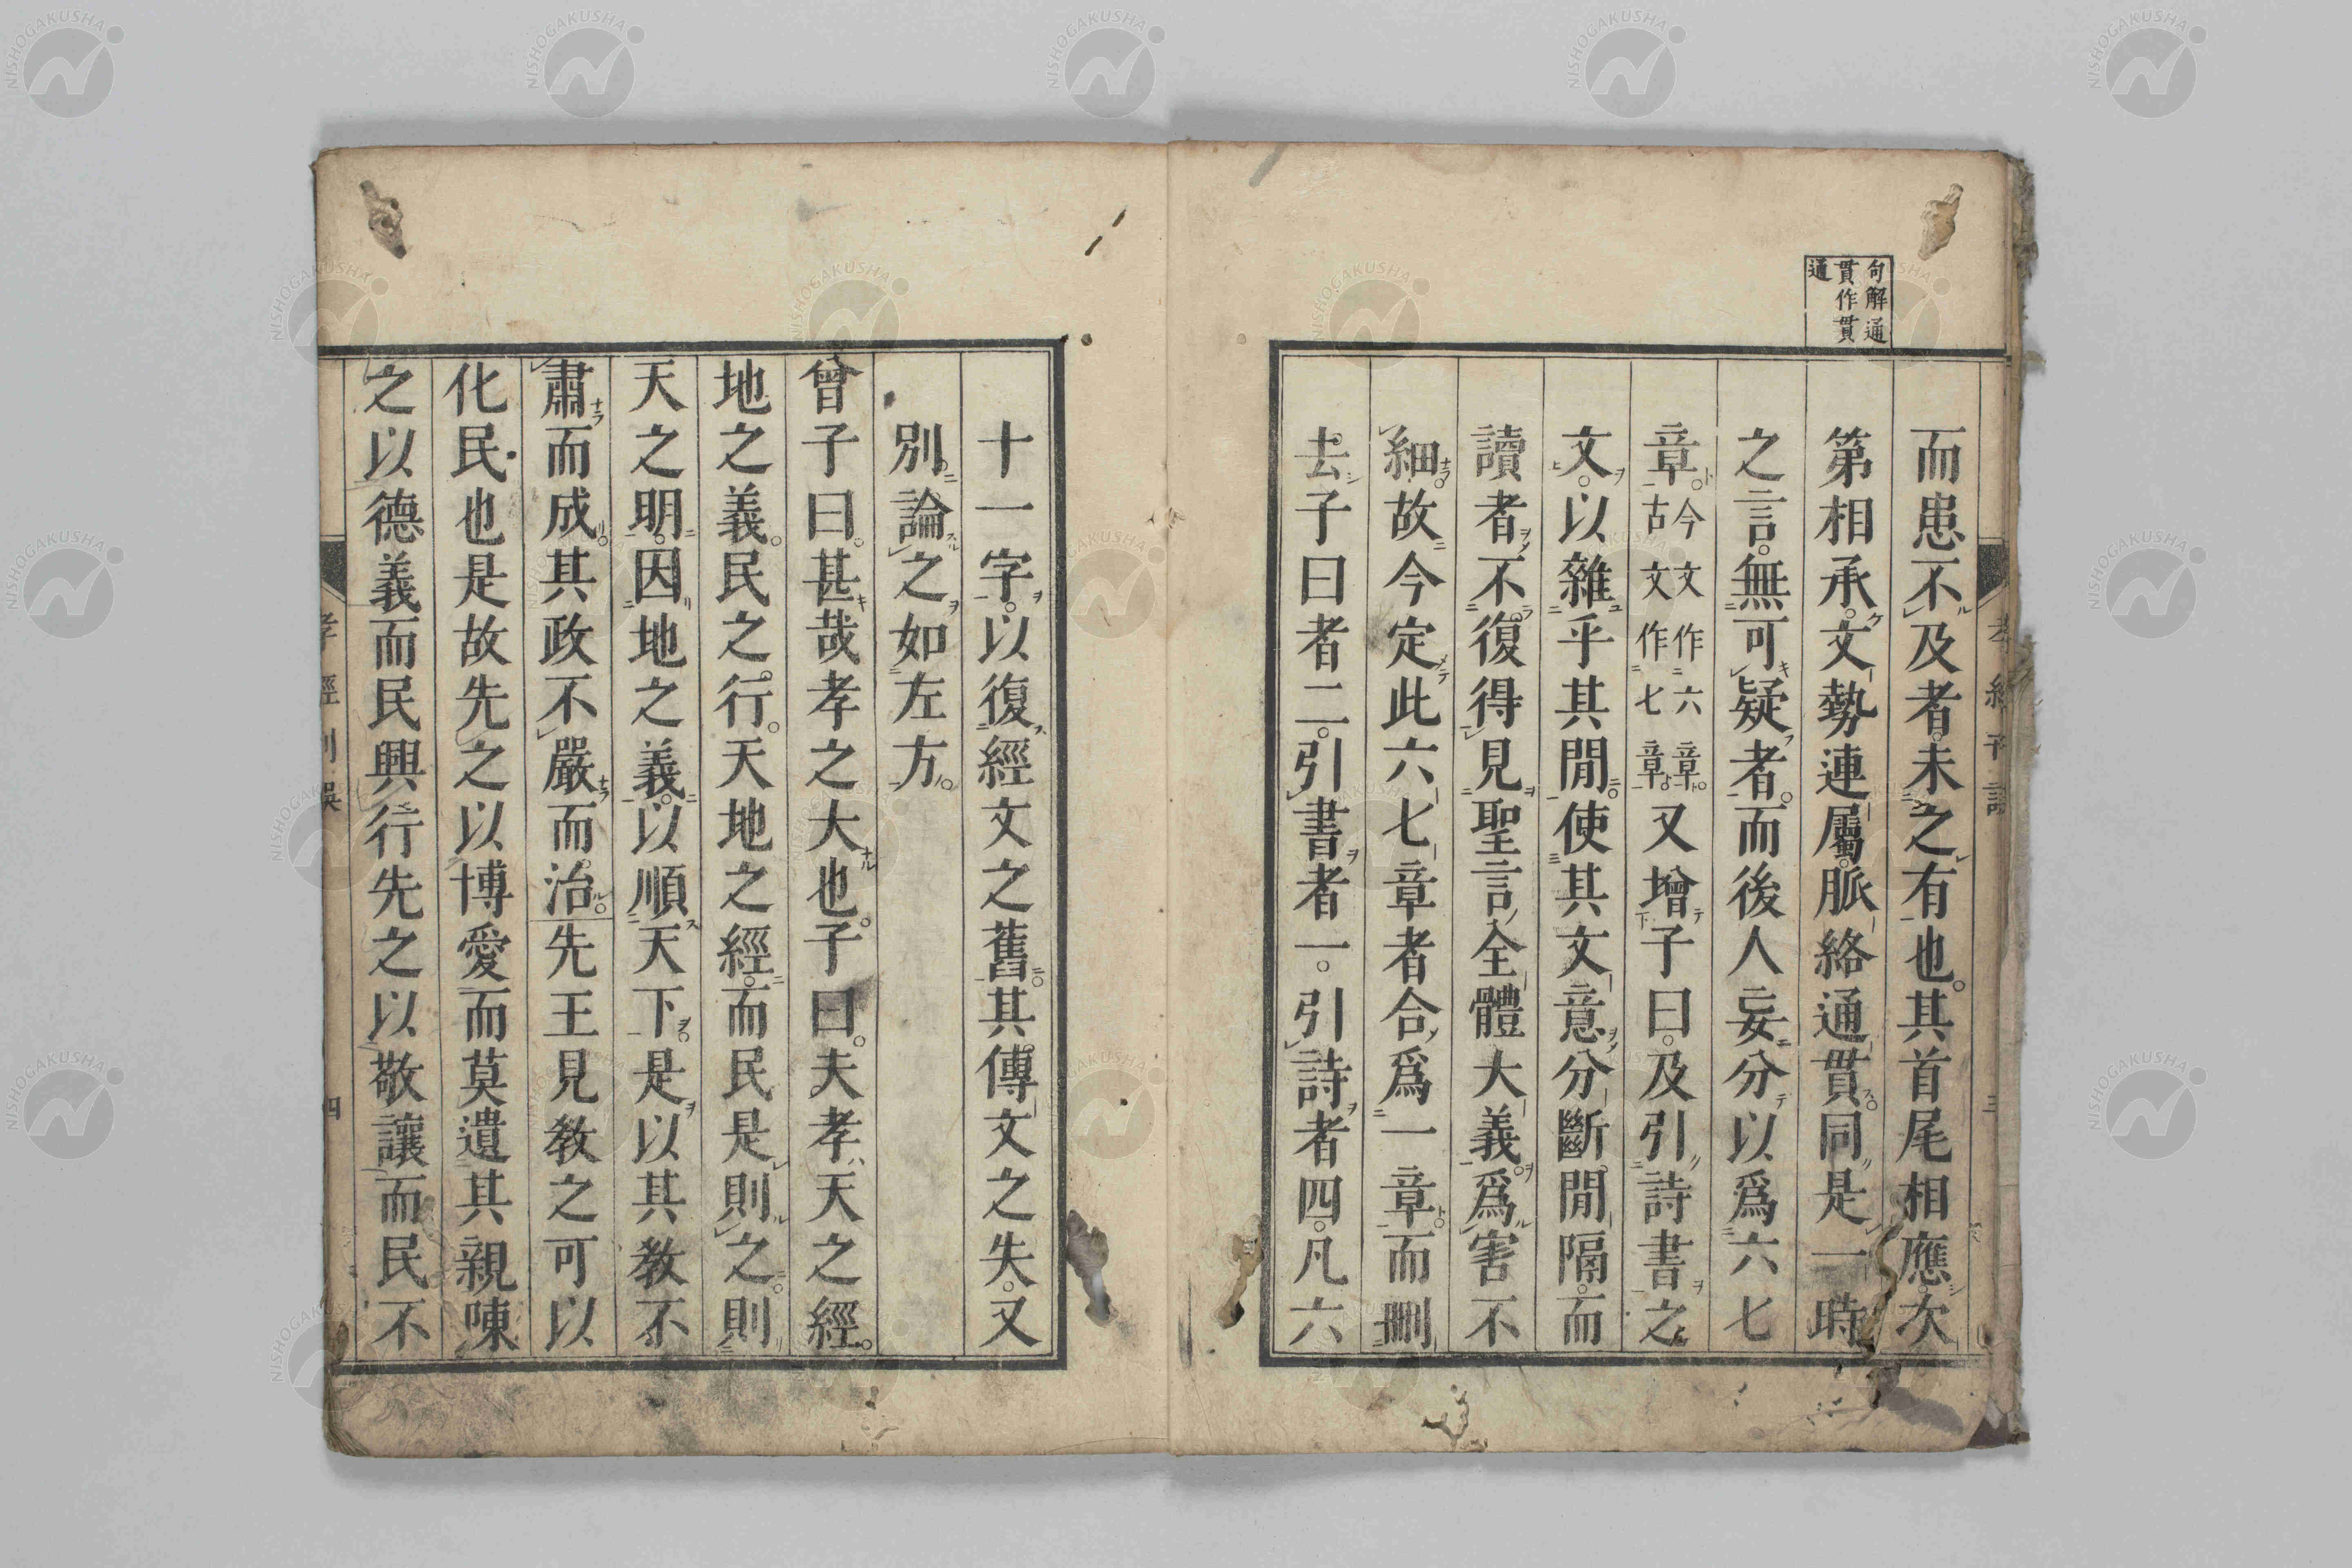 句解通
貫作貫
通
而患不及者未之有也其首尾相應次
第相承文勢連屬脈絡通貫同是一時
之言無可疑者而後人妄分以爲六七
章今文作六章古文作七章又增子曰及引詩書之
文以雜乎其閒使其文意分斷閒隔而
讀者不復得見聖言全體大義爲害不
細故今定此六七章者合爲一章而刪
去子曰者二引書者一引詩者四凡六
十一字以復經文之舊其傳文之失又
別論之如左方
曾子曰甚哉孝之大也子曰夫孝天之經
地之義民之行天地之經而民是則之則
天之明因地之義以順天下是以其敎不
肅而成其政不嚴而治先王見敎之可以
化民也是故先之以博愛而莫遺其親陳
之以德義而民興行先之以敬讓而民不
孝經刊誤
四
NISHOGAKUSHA